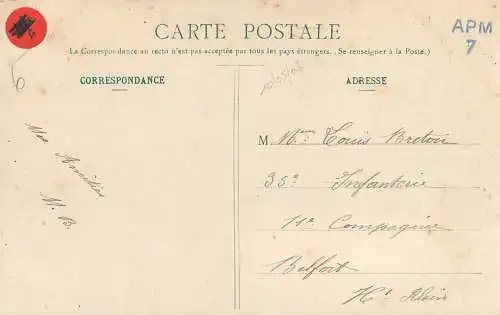 CARTE POSTALE
APM
7
(La Correspondance au recto n'est pas acceptée par tous les pays étrangers. (Se renseigner à la Poste.)
CORRESPONDANCE
ADRESSE
6
M. Mr Louis Breton
35e Infanterie
11e Compagnie
Belfort
Ht Rhin
Mes Amitiés
M. B.